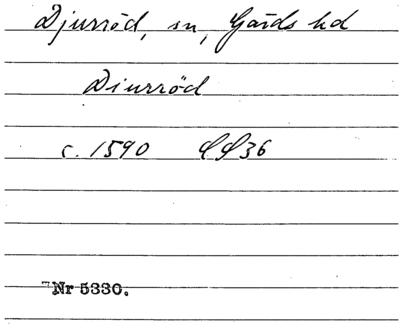 Djurröd, sn, Gärds hd
Diurröd
c. 1590 SS36
Nr 5330.